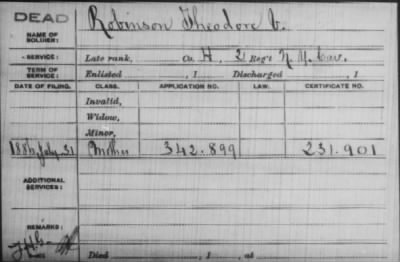 DEAD
NAME OF SOLDIER: Robinson Theodore V.
SERVICE: Late rank, Co. H, 2 Reg't N.Y. Cav.
TERM OF SERVICE: Enlisted , 1 Discharged , 1
DATE OF FILING. CLASS. APPLICATION NO. LAW. CERTIFICATE NO.
Invalid,
Widow,
Minor,
1886, July 31 Mother 342.899 231.901
ADDITIONAL SERVICES:
REMARKS:
Died , 1 , at